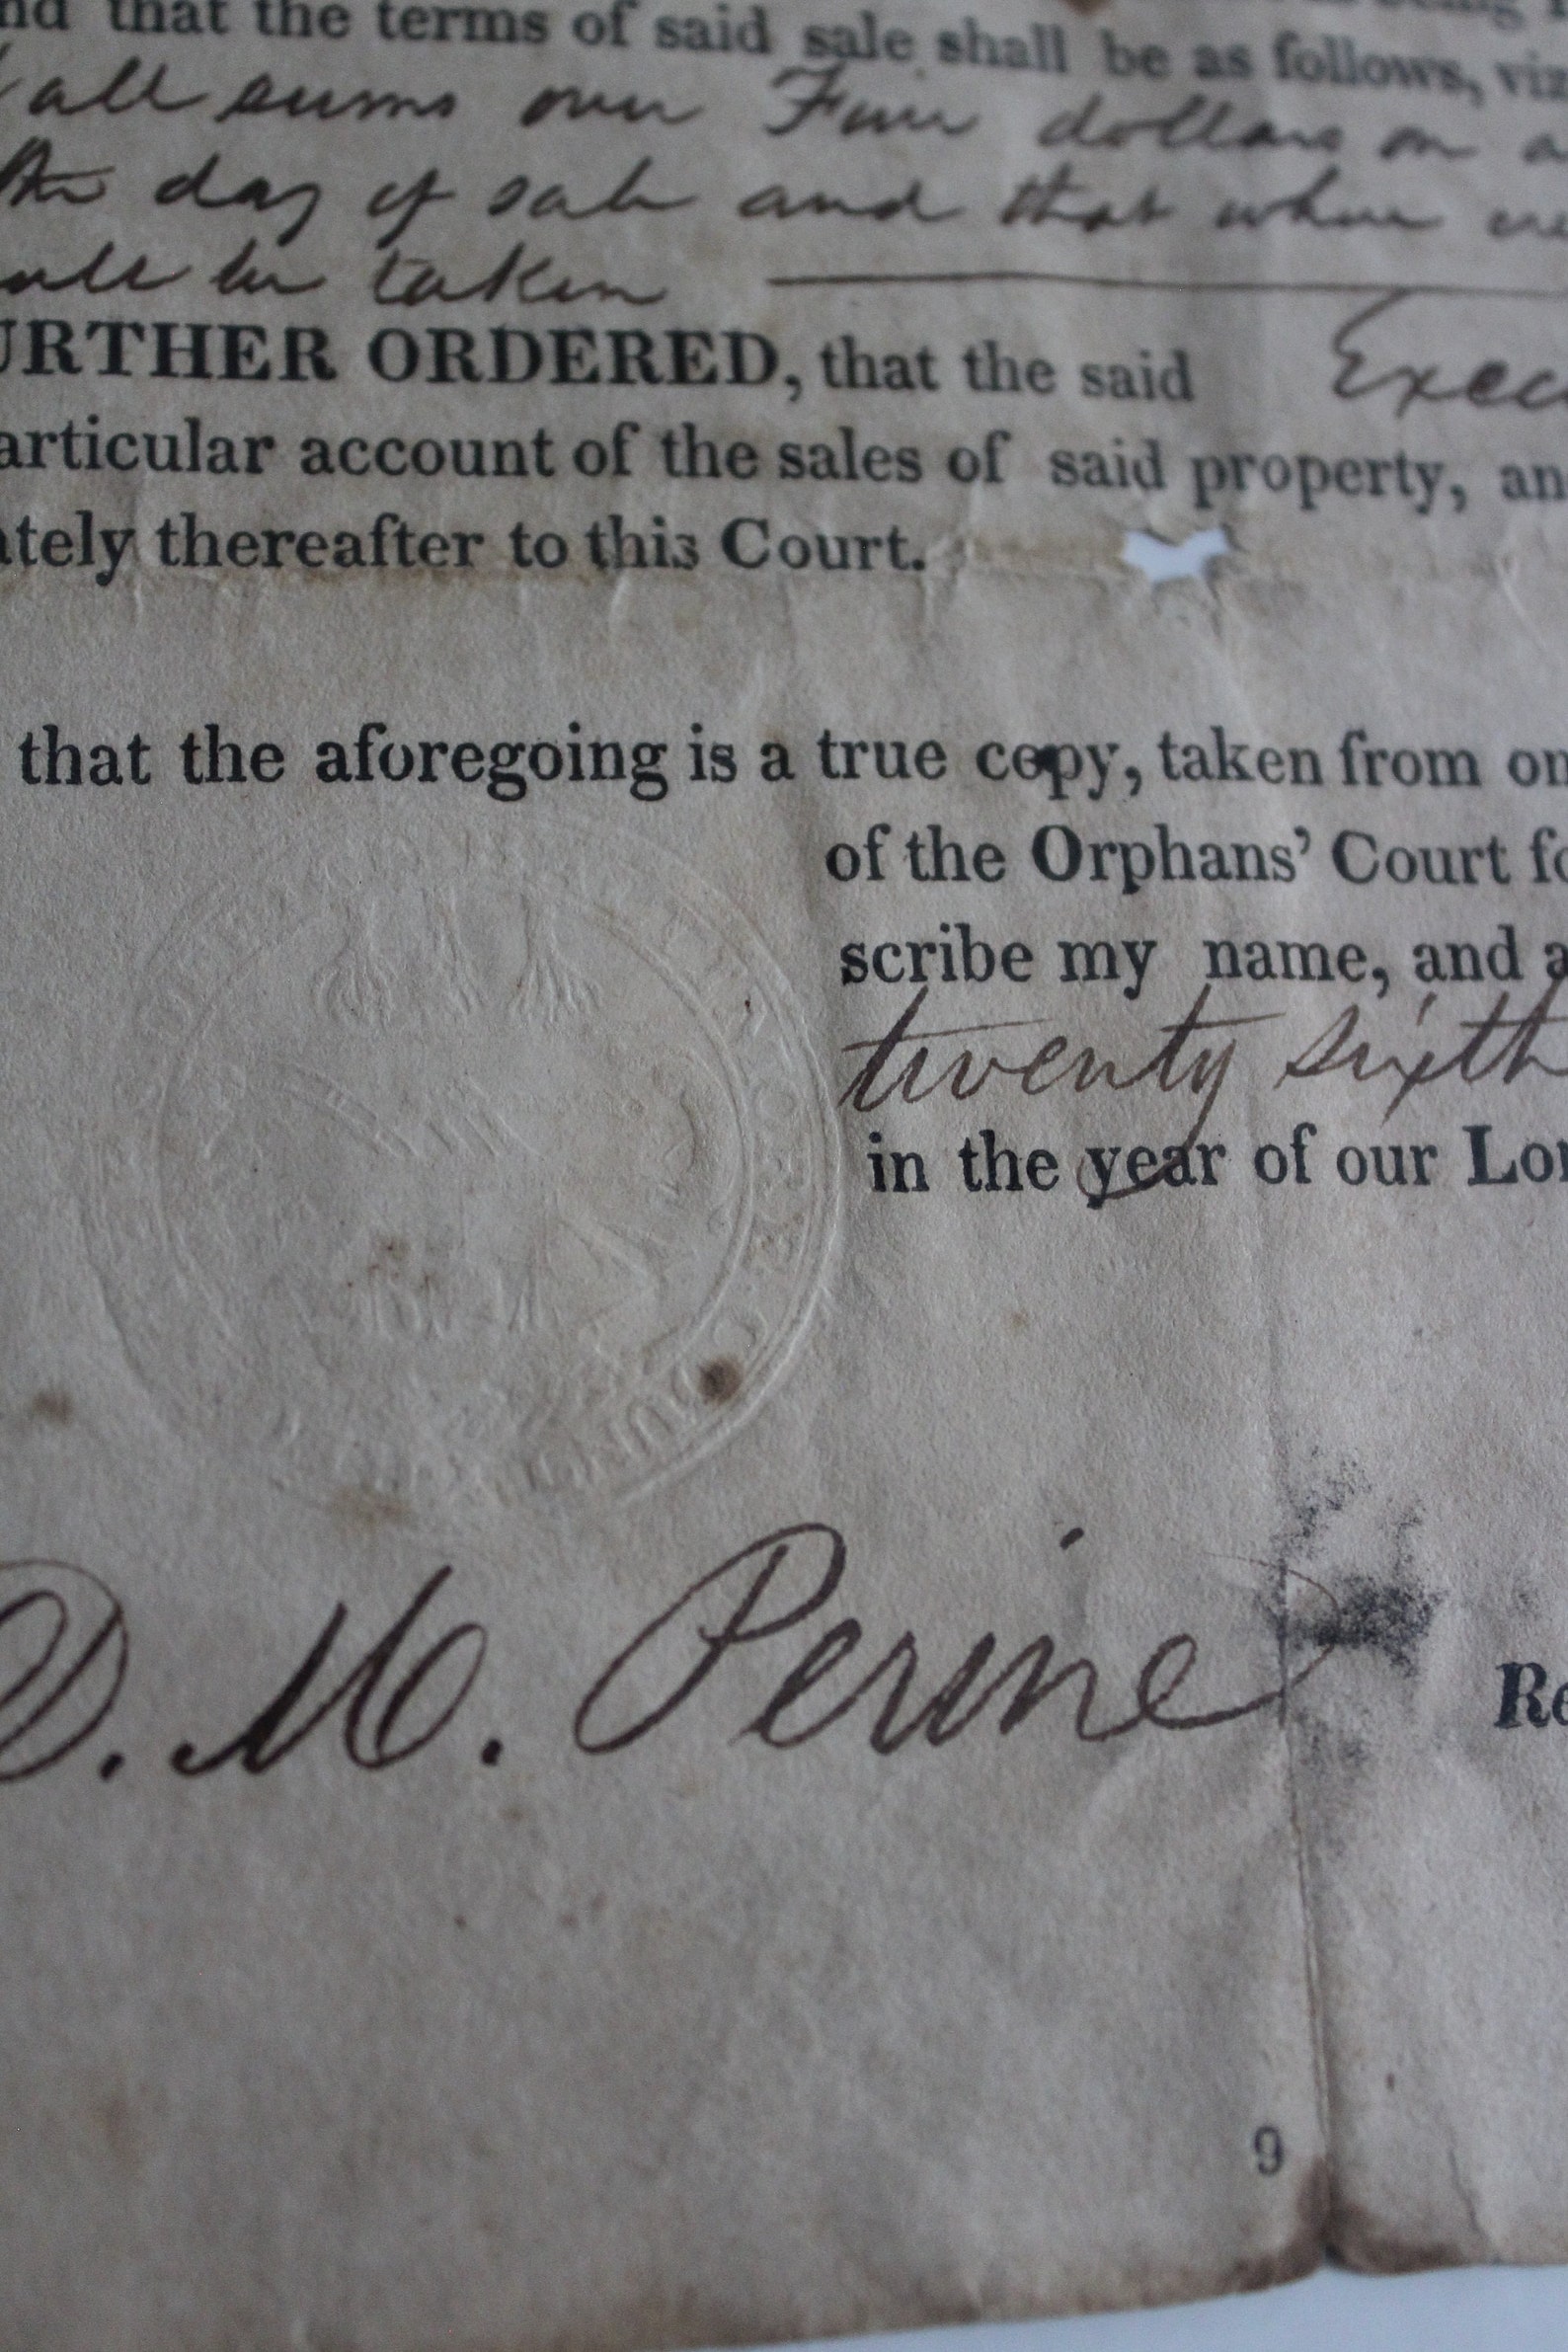 nd that the terms of said sale shall be as follows, viz
all sums over Five dollars on a
the day of sale and that when
will be taken
URTHER ORDERED, that the said Exec
articular account of the sales of said property, an
ately thereafter to this Court.
that the aforegoing is a true copy, taken from on
of the Orphans' Court fo
scribe my name, and a
twenty sixth
in the year of our Lor
D. M. Perine Re
9